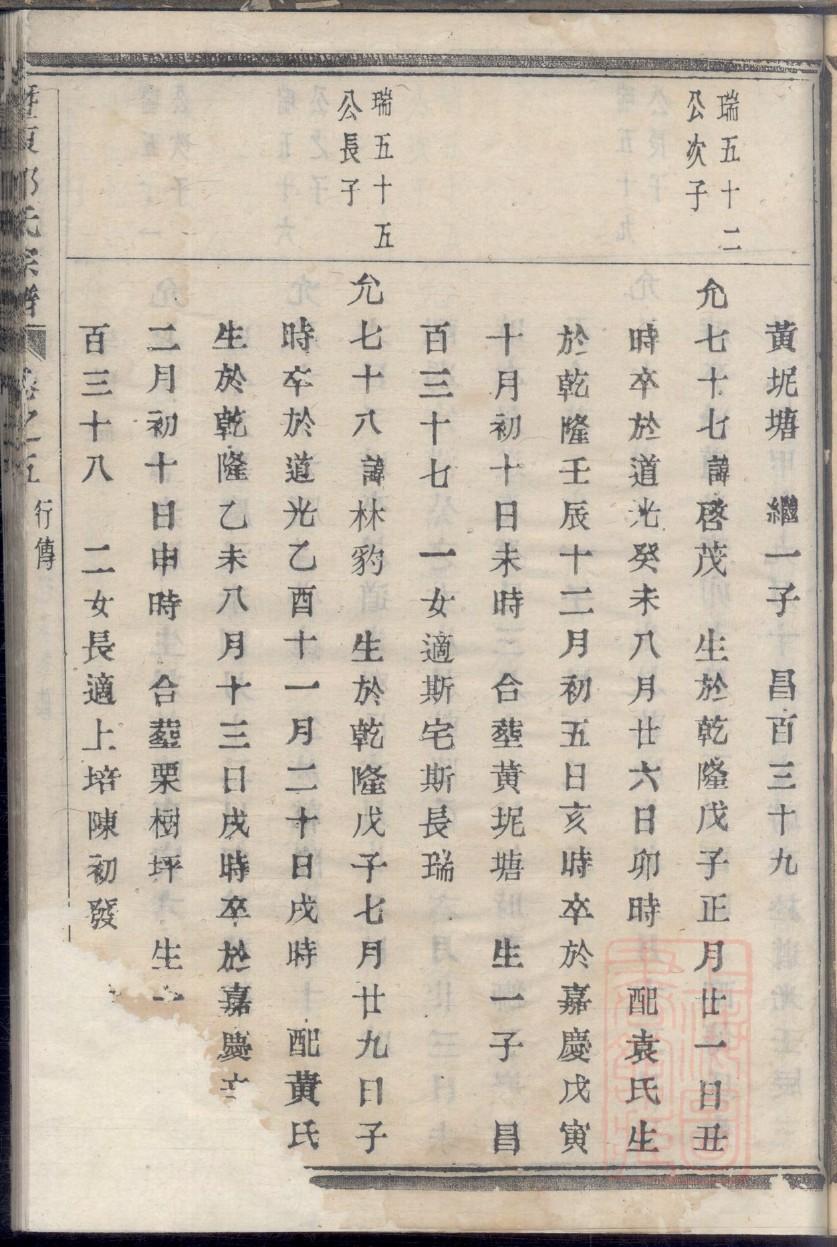 黃坭塘　繼一子　昌百三十九
瑞五十二
公次子
允七十七諱啓茂　生於乾隆戊子正月廿一日丑
時卒於道光癸未八月廿六日卯時　配袁氏生
於乾隆壬辰十二月初五日亥時卒於嘉慶戊寅
十月初十日未時　合塟黃坭塘　生一子　昌
百三十七　一女適斯宅斯長瑞
瑞五十五
公長子
允七十八諱林豹　生於乾隆戊子七月廿九日子
時卒於道光乙酉十一月二十日戌時　配黃氏
生於乾隆乙未八月十三日戌時卒於嘉慶
二月初十日申時　合塟栗樹坪　生一
百三十八　二女長適上培陳初發
氏宗譜　卷之五　行傳